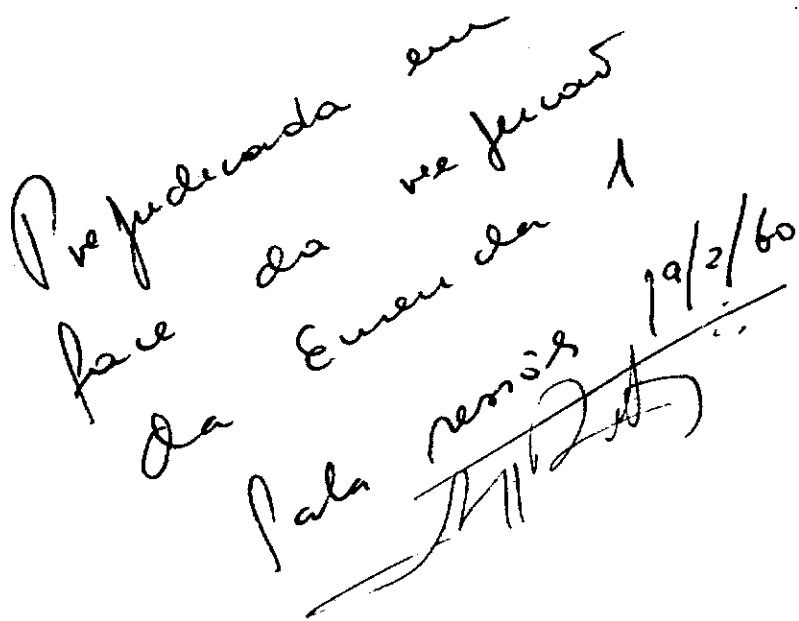 Prejudicada em
face da rejeicaõ
da Emenda 1
Sala sessões 19/2/60